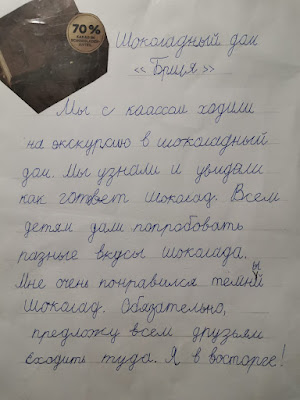 70%
Шоколадный дом
«Бриця»
Мы с каассой ходили
на экскурсию в шоколадный
дом. Мы узнали и увидали
как гответ шоколад. Всем
детям дали попробовать
разные вкусы шоколада.
Мне очень понравился тёмный
шоколад. Обязательно,
предложу всем друзьям
сходить туда. Я в восторге!